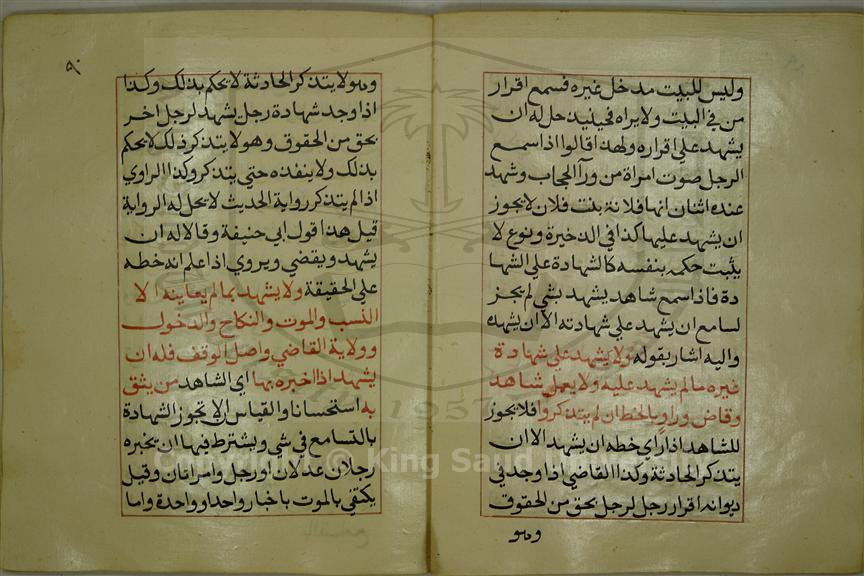 وليس للبيت مدخل غيره فسمع اقرار
من في البيت ولا يراه فحينيذ حل له ان
يشهد علي اقراره ولهذا قالوا اذا سمع
الرجل صوت امراة من ورآ الحجاب وشهد
عنده اثنان انها فلانة بنت فلان لا يجوز
ان يشهد عليها كذا في الدخيرة ونوع لا
يثبت حكمه بنفسه كالشهادة علي الشها
دة فاذا سمع شاهد يشهد بشي لم يجز
لسامع ان يشهد علي شهادته الا ان يشهده
واليه اشار بقوله ولا يشهد علي شهادة
غيره مالم يشهد عليه ولا يعمل شاهد
وقاض وراو بالخط ان لم يتذكروا فلا يجوز
للشاهد اذا راي خطه ان يشهد الا ان
يتذكر الحادثة وكذا القاضي اذا وجد في
ديوانه اقرار رجل لرجل بحق من الحقوق
وهو
٩٠
وهو لا يتذكر الحادثة لا يحكم بذلك وكذا
اذا وجد شهادة رجل يشهد لرجل اخر
بحق من الحقوق وهو لا يتذكر ذلك لا يحكم
بذلك ولا ينفذه حتي يتذكر وكذا الراوي
اذا لم يتذكر رواية الحديث لا يحل له الرواية
قيل هذا قول ابي حنيفة وقالا له ان
يشهد ويقضي ويروي اذا علم انه خطه
علي الحقيقة ولا يشهد بما لم يعاينه الا
النسب والموت والنكاح والدخول
وولاية القاضي واصل الوقف فله ان
يشهد اذا اخبره بها اي الشاهد من يثق
به استحسانا والقياس ان لا تجوز الشهادة
بالتسامع في شي ويشترط فيها ان يخبره
رجلان عدلان او رجل وامراتان وقيل
يكتفي بالموت باخبار واحد او واحدة واما
King Saud
1957